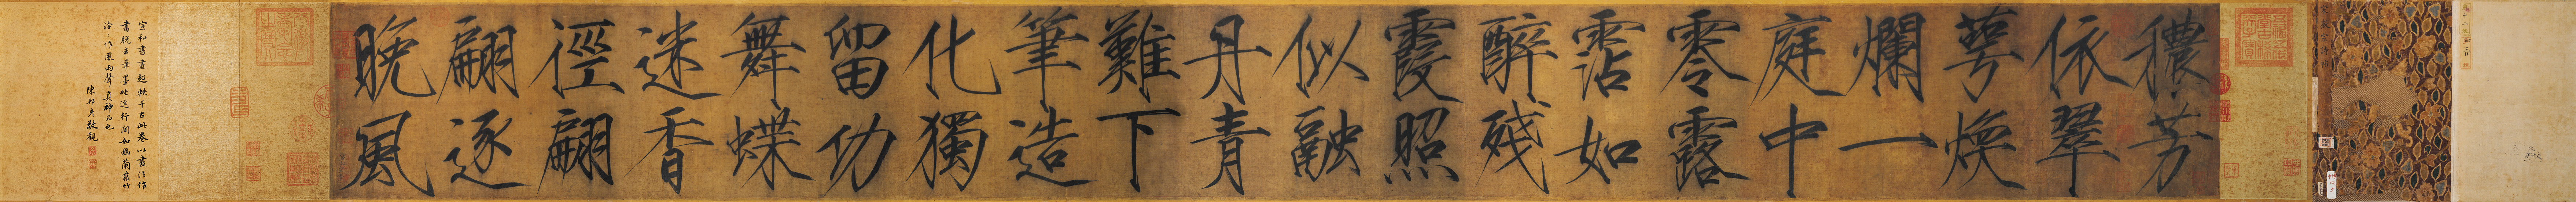 穠芳
依翠
萼煥
爛一
庭中
零露
霑如
醉殘
霞照
似融
丹青
難下
筆造
化獨
留功
舞蝶
迷香
徑翩
翩逐
晚風
宣和書畫超軼千古此卷以書法作
畫脫去筆墨畦逕行間如幽蘭叢竹
泠〻作風雨聲真神品也
陳邦彥敬觀